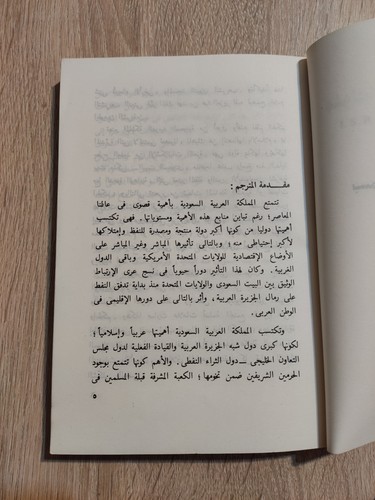 مقـــدمة المترجم :
تتمتع المملكة العربية السعودية بأهمية قصوى فى عالمنا
المعاصر؛ رغم تباين منابع هذه الأهمية ومستوياتها. فهى تكتسب
أهميتها دوليا من كونها أكبر دولة منتجة ومصدرة للنفط وإمتلاكها
لأكبر إحتياطى منه ؛ وبالتالى تأثيرها المباشر وغير المباشر على
الأوضاع الإقتصادية للولايات المتحدة الأمريكية وباقى الدول
الغربية. وكان لهذا التأثير دوراً حيوياً فى نسج عرى الإرتباط
الوثيق بين البيت السعودى والولايات المتحدة منذ بداية تدفق النفط
على رمال الجزيرة العربية، وأثر بالتالى على دورها الإقليمى فى
الوطن العربى.
وتكتسب المملكة العربية السعودية أهميتها عربياً وإسلامياً؛
لكونها كبرى دول شبه الجزيرة العربية والقيادة الفعلية لدول مجلس
التعاون الخليجى ــ دول الثراء النفطى. والأهم كونها تتمتع بوجود
الحرمين الشريفين ضمن تخومها ؛ الكعبة المشرفة قبلة المسلمين فى
٥